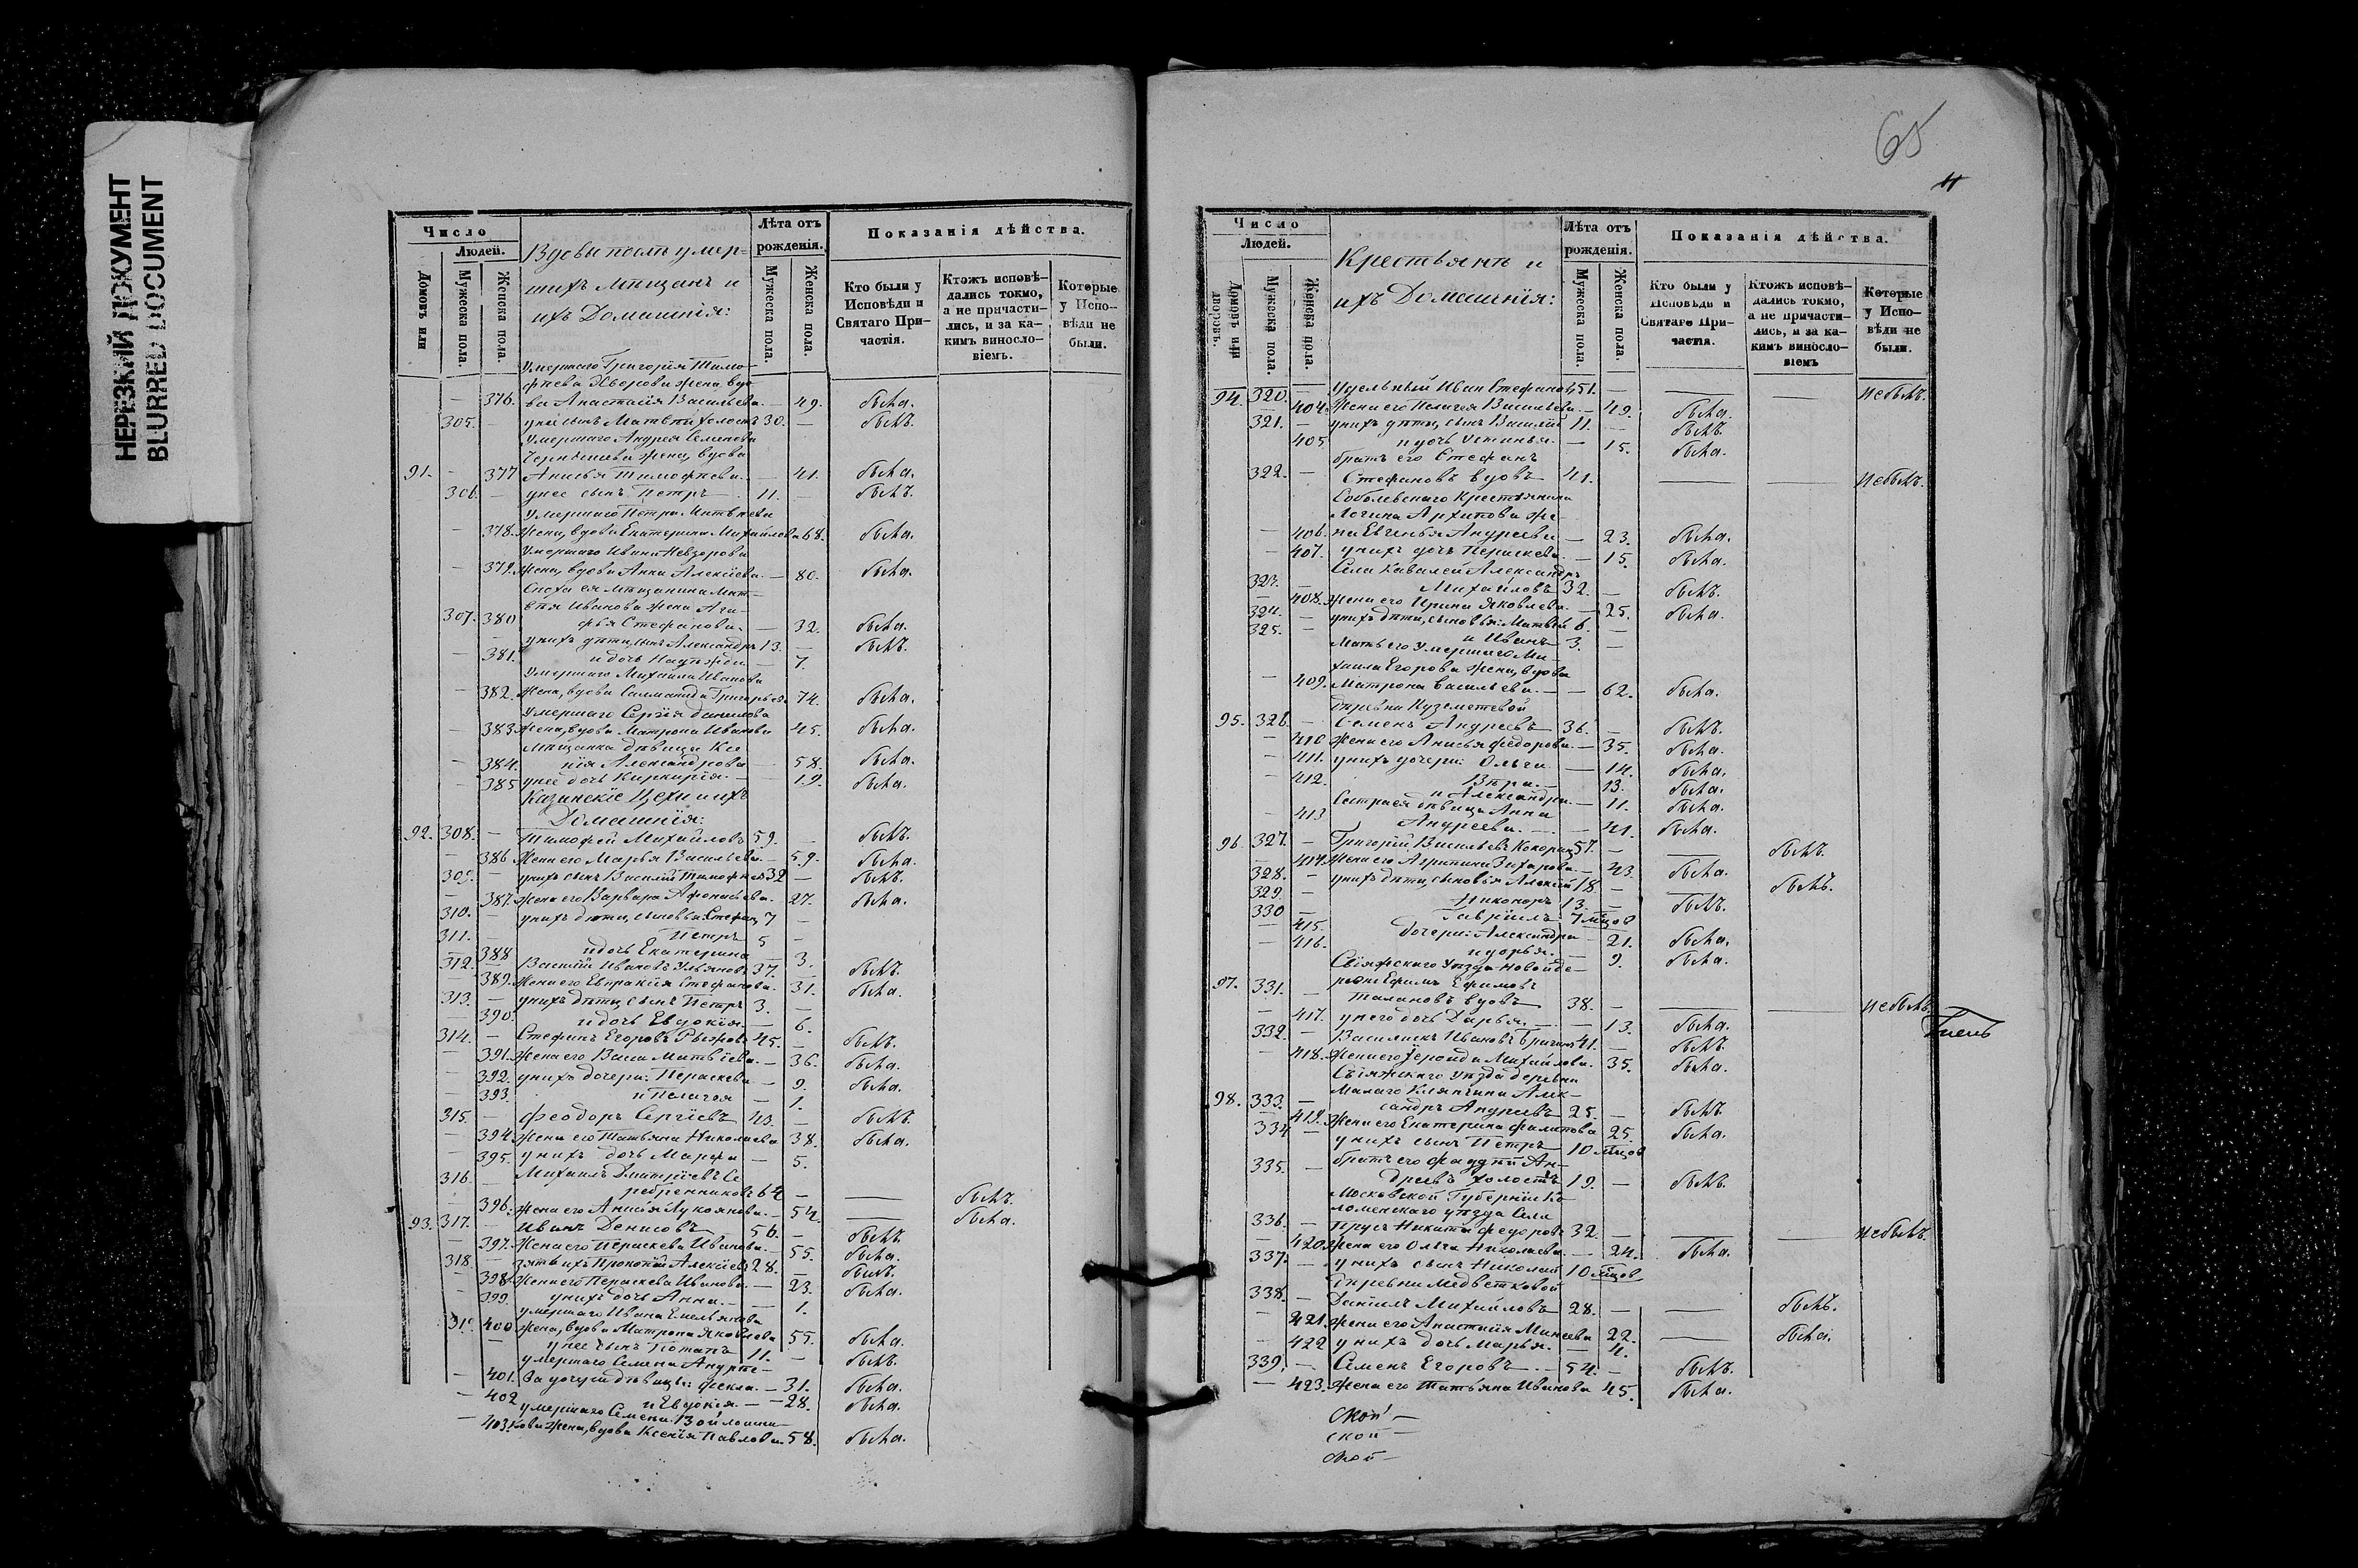 НЕРЕЗКИЙ ДОКУМЕНТ
BLURRED DOCUMENT
Число
Людей.
Домовъ или
Мужеска пола.
Женска пола.
Вдовы послѣ умер-
шихъ Мѣщанъ и
ихъ Домашнія:
Лѣта отъ
рожденія.
Мужеска пола.
Женска пола.
Показанія дѣйства.
Кто были у
Исповѣди и
Святаго При-
частія.
Ктожъ исповѣ-
дались токмо,
а не причасти-
лись, и за ка-
кимъ винословіемъ.
Которые
у Испо-
вѣди не
были.
Умершаго Григорія Тимо-
фѣева Хворова жена, вдо-
— 376. ва Анастасія Васильева. — 49. была.
305. — у ней сынъ Матвѣй холостъ 30. — былъ.
Умершаго Андрея Семенова
жена, вдова
91. — 377 Анисья Тимофѣева. — 41. была.
306. — у нее сынъ Петръ 11. — былъ.
Умершаго Петра Матвѣева
— 378. жена, вдова Екатерина Михайлова 68. была.
Умершаго Ивана Невзорова
— 379. жена, вдова Анна Алексіева. — 80. была.
Сноха ея мѣщанина Мат-
вѣя Иванова жена Ага-
307. 380 фья Стефанова. — 32. была.
— у нихъ дѣти, сынъ Александръ 13. — былъ.
— 381. и дочь Надѣжда — 7.
Умершаго Михаила Иванова
— 382. жена, вдова Саламанида Григорьева 74. была.
Умершаго Сергія Данилова
— 383 жена, вдова Матрона Иванова 45. была.
Мѣщанка дѣвица Ксе-
— 384. нія Александрова — 58. была.
— 385 у нее дочь Киркирія. — 19. была.
Казанскіе Цехи и ихъ
Домашнія:
92. 308. — Тимофей Михайловъ 59. — былъ.
— 386 Жена его Марья Васильева — 59. была.
309. — у нихъ сынъ Василій Тимофѣевъ 32 — былъ.
— 387. жена его Варвара Афонасьева. 27. была.
310. — у нихъ дѣти, сыновья: Стефанъ 7 —
311. — Петръ 5 —
— 388 и дочь Екатерина — 3.
312. — Василій Ивановъ Ульяновъ 37. — былъ.
— 389. Жена его Евпраксія Стефанова. 31. была.
313. — у нихъ дѣти, сынъ Петръ 3. —
— 390. и дочь Евдокія. — 6.
314. — Стефанъ Егоровъ Рыжовъ 45. — былъ.
— 391. жена его Васса Матвѣева. — 36. была.
— 392. у нихъ дочери: Параскева — 9. была.
393. и Пелагея — 1.
315. — Феодоръ Сергіевъ 43. — былъ.
— 394. Жена его Татьяна Николаева 38. была.
— 395. у нихъ дочь Марфа — 5.
316. — Михаилъ Дмитріевъ Се-
ребренниковъ 64 — — былъ.
— 396. жена его Анисія Лукоянова. — 54. — была.
93. 317. — Иванъ Денисовъ 56. — былъ.
— 397. Жена его Параскева Иванова. — 55. была.
318. — зять ихъ Прокопій Алексіевъ 28. — былъ.
— 398. жена его Параскева Иванова. — 23. была.
— 399. у нихъ дочь Анна. — 1.
умершаго Ивана Емельянова
400 жена, вдова Матрона Яковлева 55. была.
319. — у нее сынъ Потапъ 11. — былъ.
умершаго Семена Андрѣе-
— 401. ва дочери дѣвицы: Фекла. — 31. была.
— 402 и Евдокія. — 28. была.
умершаго Семена Войлошни-
— 403. кова жена, вдова Ксенія Павлова. 58. была.
65
Число
Людей.
Домовъ или
дворовъ.
Мужеска пола.
Женска пола.
Крестьянъ и
ихъ Домашнія:
Лѣта отъ
рожденія.
Мужеска пола.
Женска пола.
Показанія дѣйства.
Кто были у
Исповѣди и
Святаго При-
частія.
Ктожъ исповѣ-
дались токмо,
а не причасти-
лись, и за ка-
кимъ винословіемъ
Которые
у Испо-
вѣди не
были.
94. 320. — Удельный Иван Стефановъ 51. — — — небылъ.
404. Жена его Пелагея Васильева. — 49. была.
321. — у нихъ дѣти, сынъ Василій 11. — былъ.
405 и дочь Устинья. — 15. была.
братъ его Стефанъ
322. — Стефановъ вдовъ 41. — — небылъ.
Соболевскаго крестьянина
Логина Архипова же-
— 406. на Евгенья Андреева — 23. была.
— 407. у нихъ дочь Параскева. — 15. была.
Села Кавалей Александръ
323. — Михайловъ 32. — былъ.
— 408. жена его Ирина Яковлева. — 25. была.
324. — у нихъ дѣти, сыновья: Матвѣй 6. —
325. — и Иванъ 3. —
Мать его умершаго Ми-
хаила Егорова жена, вдова
— 409. Матрона Васильева. — 62. была.
деревни Куземетевой
95. 326. — Семенъ Андреевъ 36. — былъ.
— 410 жена его Анисья Федорова. — 35. была.
— 411. у нихъ дочери: Ольга — 14. была.
— 412. Вѣра. — 13. была.
и Александра. — 11. была.
Сестра ея дѣвица Анна
— 413 Андреева. — 41. была.
96. 327. — Григорій Васильевъ Кокоринъ 57. — — былъ.
— 414. Жена его Агрипина Захарова. — 43. была.
328. — у нихъ дѣти, сыновья Алексій 18 — былъ.
329. — Никоноръ 13. — былъ.
330 — Гавріилъ. 7 мѣцов
— 415. дочери: Александра — 21. была.
— 416. и Дарья. — 9. была.
Свіяжскаго Уѣзда Новой де-
97. 331. — ревни Ефимъ Ефимовъ
Талановъ вдовъ 38. — — — небылъ.
— 417. у него дочь Дарья. — 13. была.
332. — Василискъ Ивановъ 41. — былъ.
— 418. Жена его Михайлова. 35. была.
Свіяжскаго уѣзда деревни
Малаго Алек-
98. 333. — сандръ Андреевъ 25. — былъ.
— 419. Жена его Екатерина Филипова 25. была.
334 — у нихъ сынъ Петръ 10 мѣцов
335. — братъ его Фаддѣй Ан-
дреевъ холостъ 19. — былъ.
Московской Губерніи Ко-
ломенскаго уѣзда Села
336. — Никита Федоровъ 32. — — — небылъ.
— 420. Жена его Ольга Николаева. — 24. была.
337. — у нихъ сынъ Николай 10 мѣцов
деревни Медвѣтковой
338. — Даніилъ Михайловъ 28. — — былъ.
— 421. Жена его Анастасія Минеева 22. — была.
— 422 у нихъ дочь Марья. — 4.
339. — Семенъ Егоровъ 54. — былъ.
— 423. Жена его Татьяна Иванова 45. была.